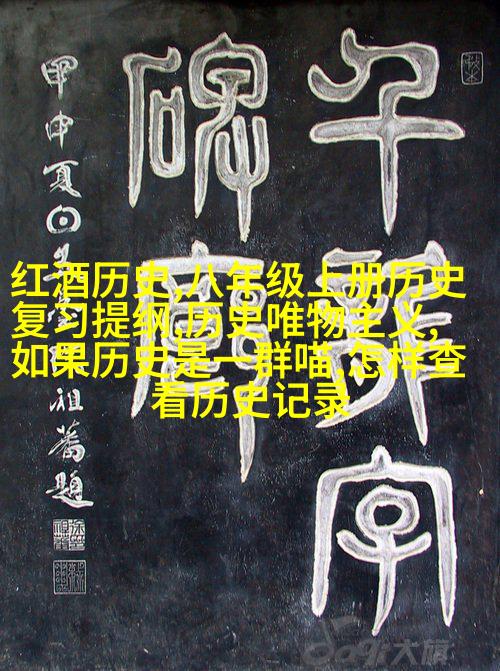 红酒历史,八年级上册历史
复习提纲,历史唯物主义,
如果历史是一群喵,怎样查
看历史记录
千 字
碑廊
甲申夏日 祖蕃題